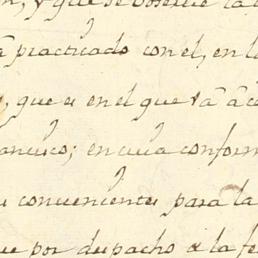 , y que se observe la
a practicado con el, en l
, que es en el que va a c
ancisco; en cuia conform
convenientes para la
ue por despacho de la fe